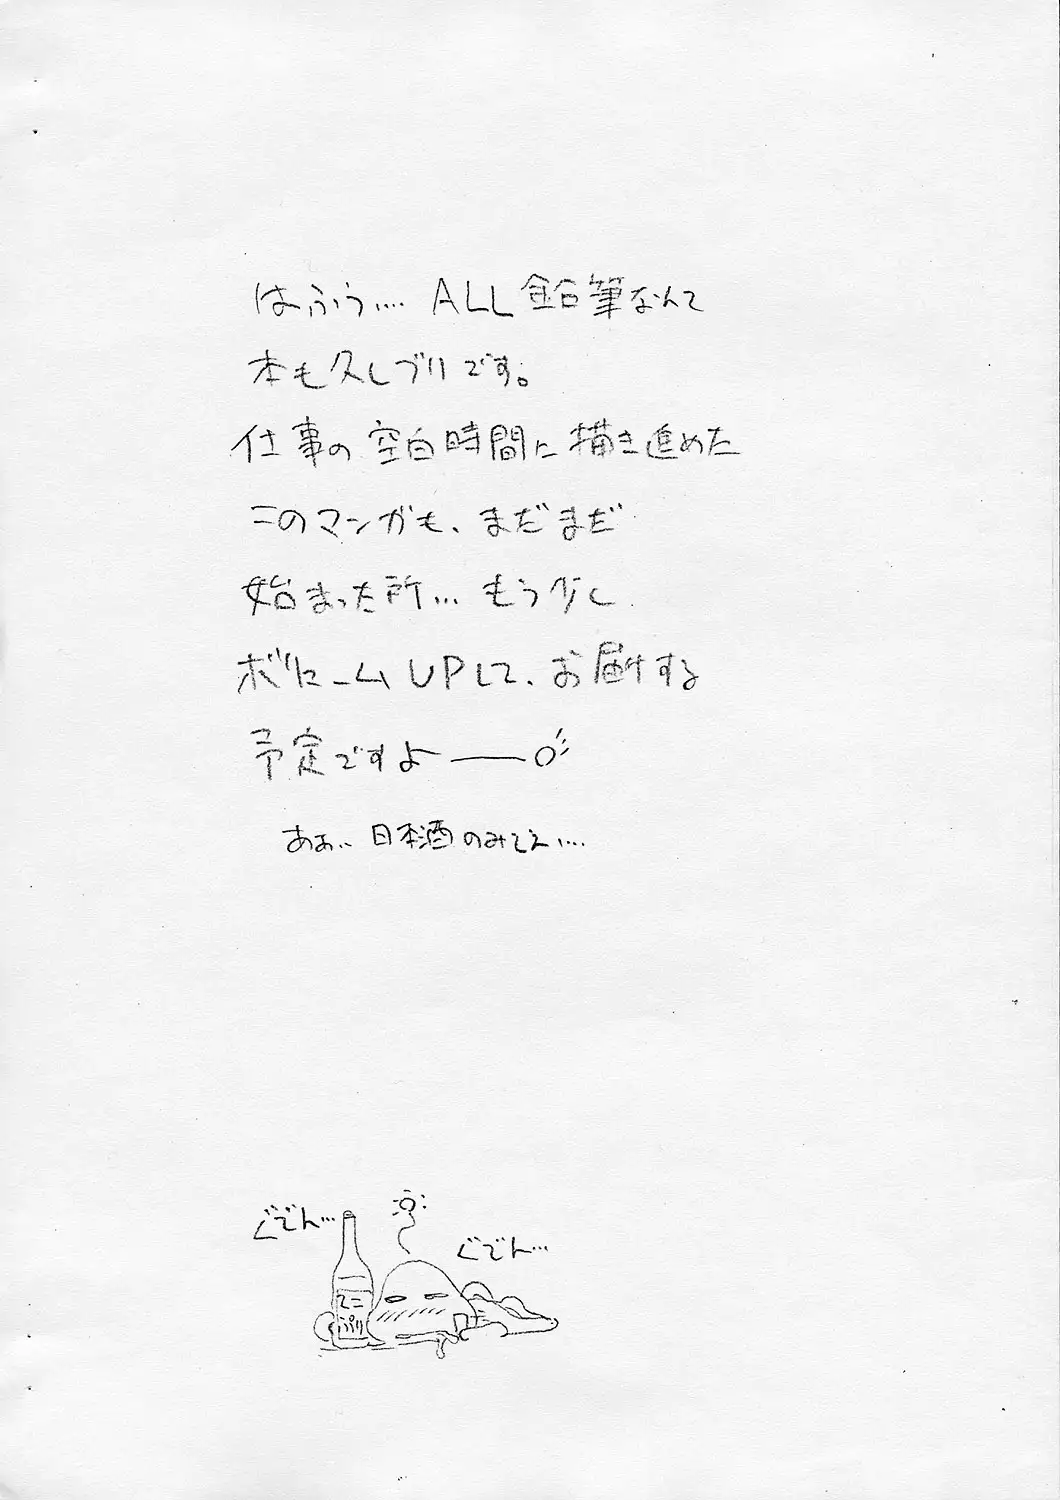 はふぅ…. ALL鉛筆なんて
本も久しブリです。
仕事の空白時間に描き進めた
このマンガも、まだまだ
始まった所… もう少し
ボリュームUPして、お届する
予定ですよ――○
ああ、日本酒のみてえ….
ぐでん…
ぐでん…
ぷり